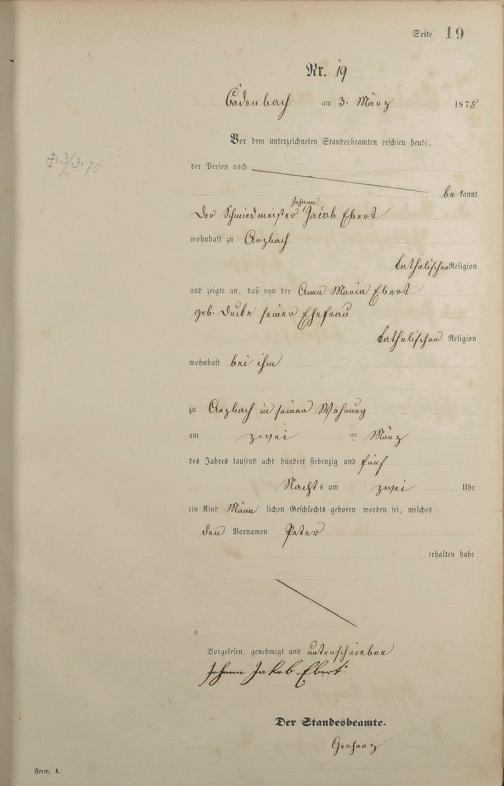 Seite 19
Nr. 19
Cadenbach am 3. März 1875
Vor dem unterzeichneten Standesbeamten erschien heute,
der Person nach
bekannt
Der Schmiedmeister Johann Jacob Ebert
wohnhaft zu Arzbach
katholischer Religion
und zeigte an, daß von der Anna Maria Ebert
geb. seiner Ehefrau
katholischer Religion
wohnhaft bei ihm
zu Arzbach in seiner Wohnung
am zwei ten März
des Jahres tausend acht hundert siebenzig und fünf
Nachts um zwei Uhr
ein Kind Männlichen Geschlechts geboren worden sei, welches
den Vornamen Peter
erhalten habe
Vorgelesen, genehmigt und unterschrieben
Johann Jakob Ebert
Der Standesbeamte.
Gerharz
Form. A.